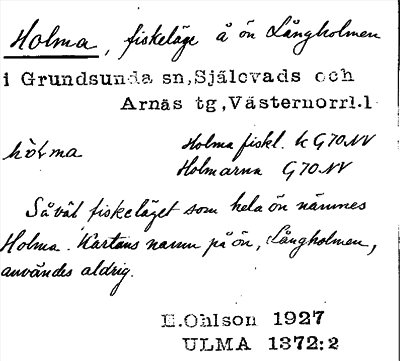 Holma, fiskeläge å ön Långholmen
i Grundsunda sn, Själevads och
Arnäs tg, Västernorrl.l
Holma fiskl. k G70NV
hòlma
Holmarna G70NV
Såväl fiskeläget som hela ön nämnes
Holma. Kartans namn på ön, Långholmen,
användes aldrig.
E.Ohlson 1927
ULMA 1372:2